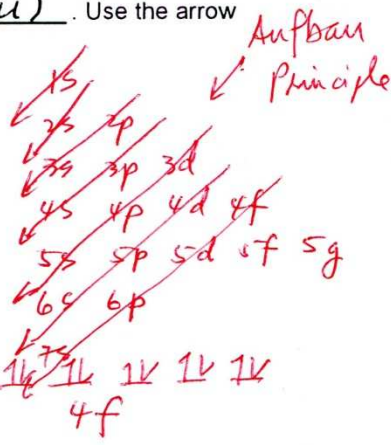 u) . Use the arrow
Aufbau
Principle
1s
2s 2p
3s 3p 3d
4s 4p 4d 4f
5s 5p 5d 5f 5g
6s 6p
7s
1L 1L 1L 1L 1L
4f